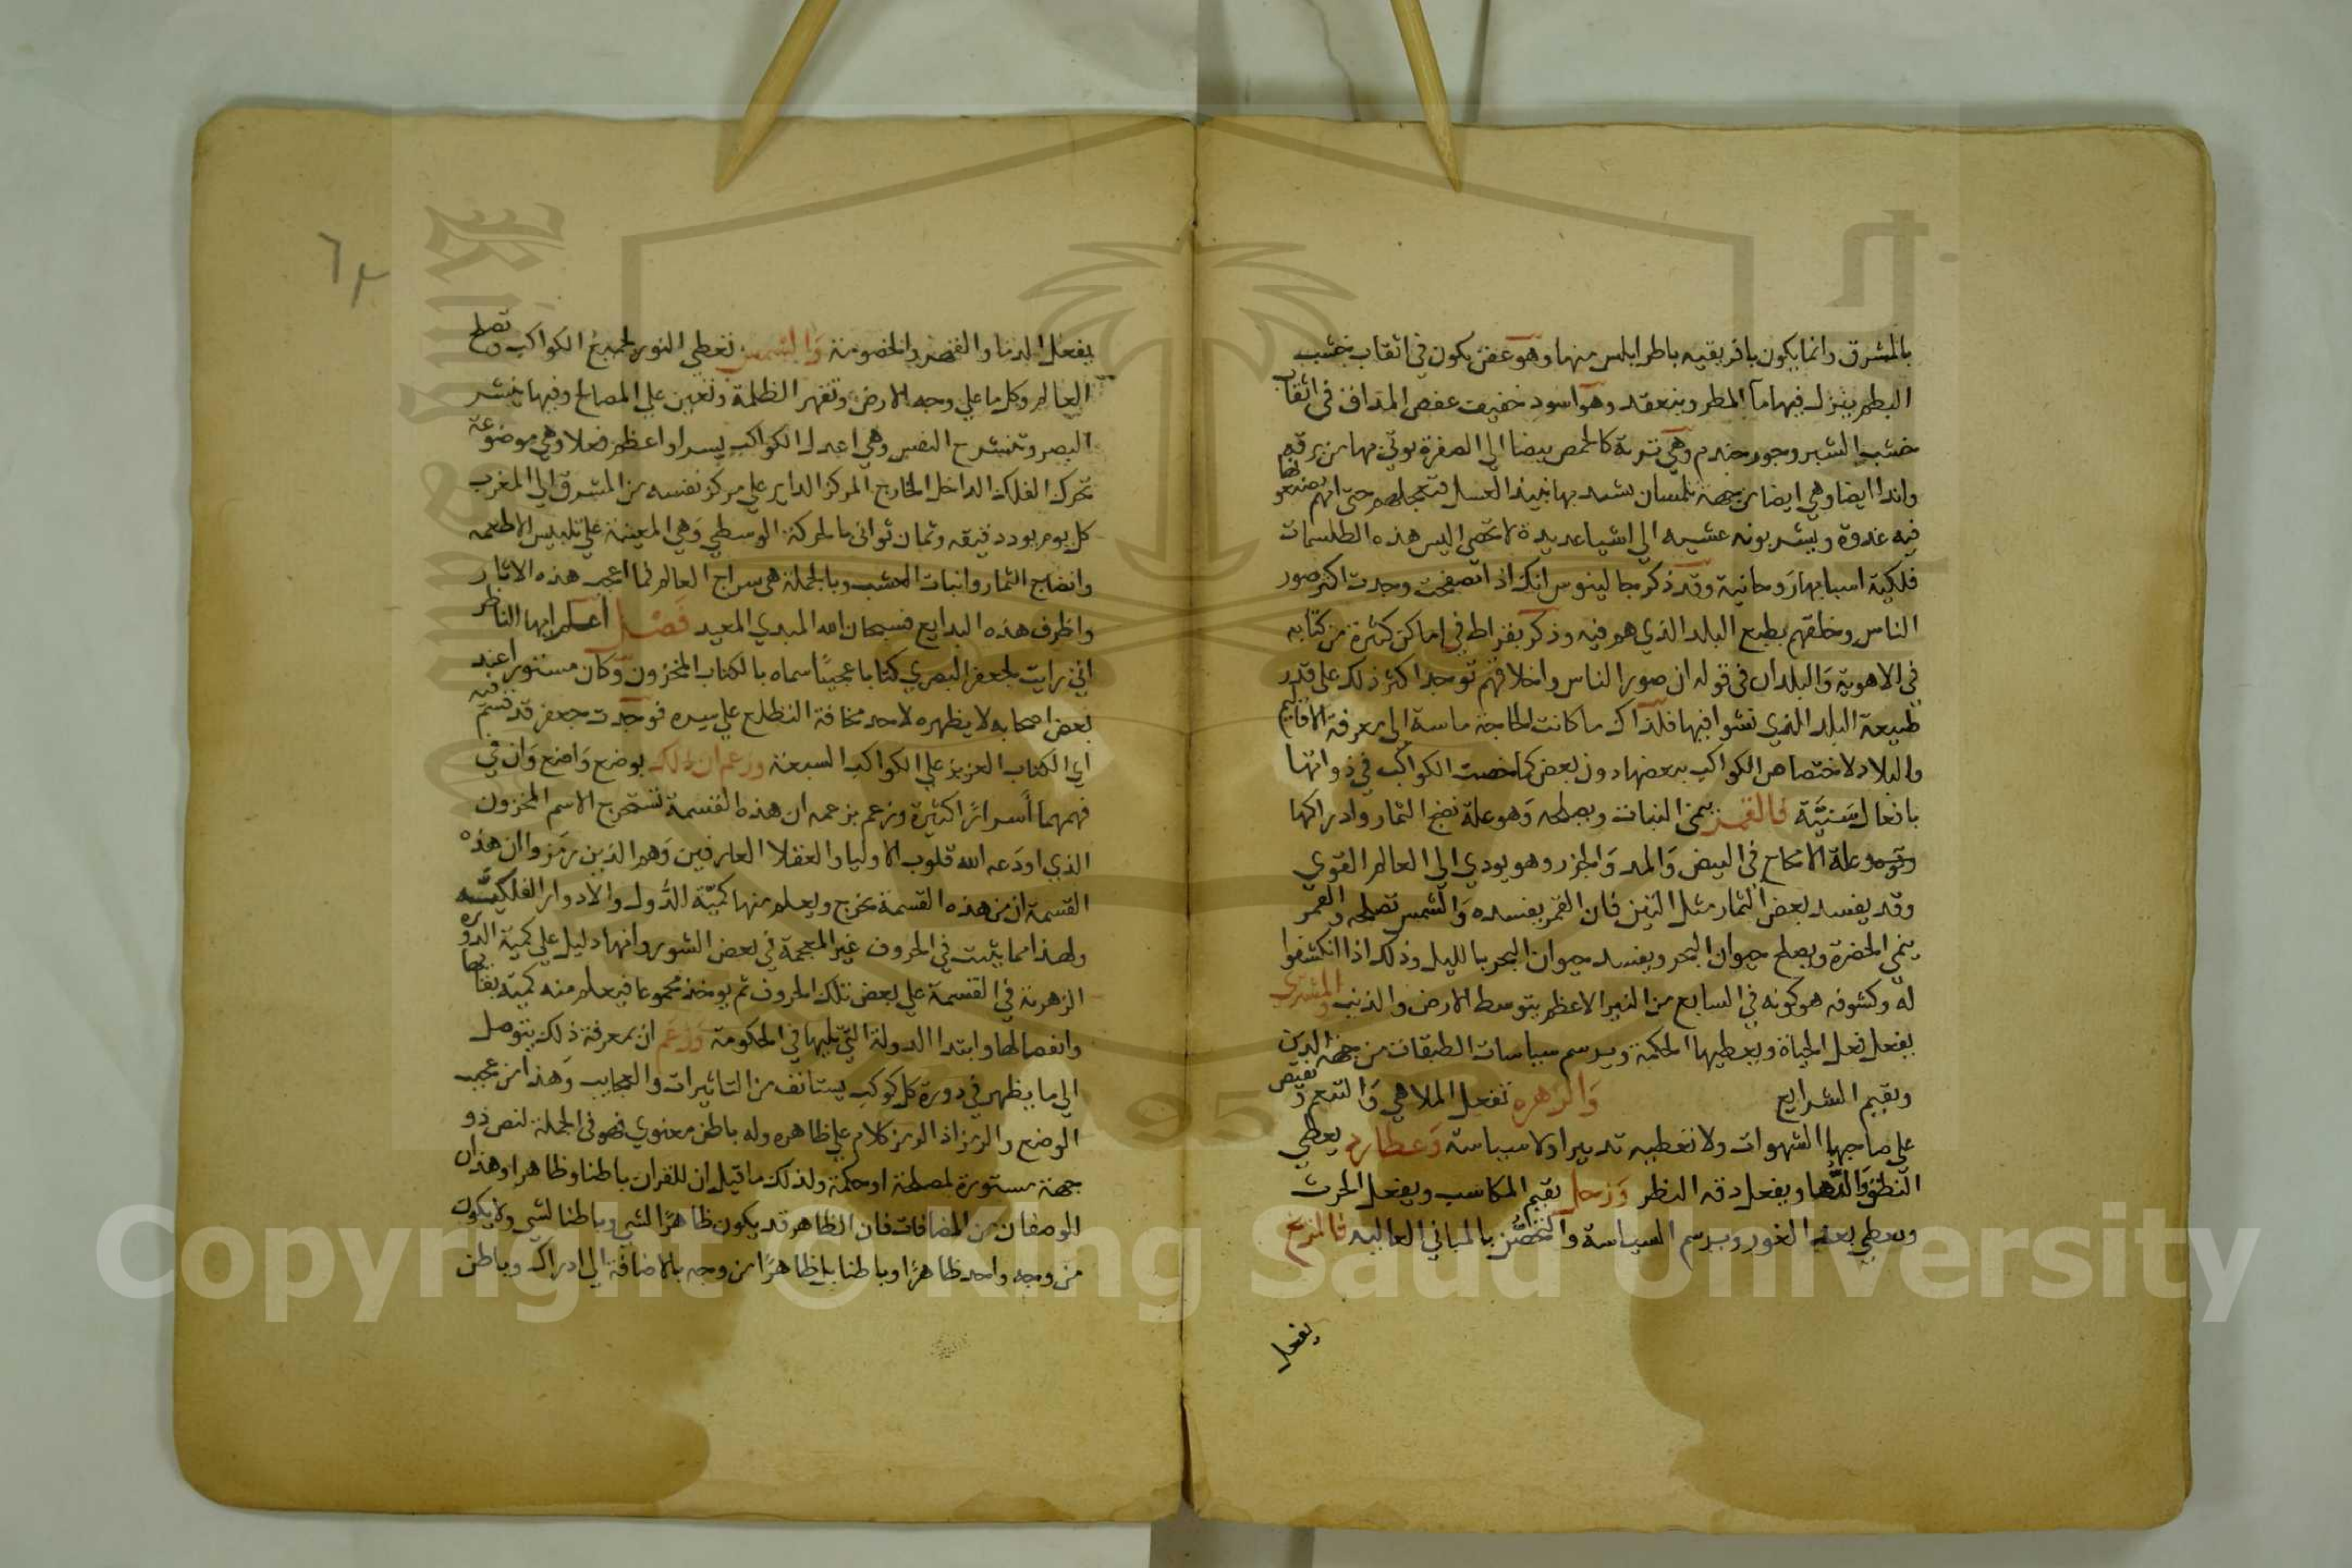 بالمشرق وانما يكون بافريقيه باطرابلس منها وهو عفن يكون في اثقاب خشب
البطم ينزل فيها ماء المطر وينعقد وهو اسود خفيف عفص المذاق في اثقاب
خشب الشبر وجوز جندم وهي تربة كالحمص بيضا الى الصفرة يوتي بها من برقه
واندا ايضا وهي ايضا من جهة تلمسان يشد بها نبيذ العسل فتعجله حتى انهم يصنعونها
فيه غدوة ويشربونه عشيه الى اشيا عديدة لا تحصى اليس هذه الطلسمات
فلكية اسبابها روحانية وقد ذكر جالينوس انك اذا تصفحت وجدت اكثر صور
الناس وخلقهم بطبع البلد الذي هو فيه وذكر بقراط في اماكن كثيرة من كتابه
في الاهوية والبلدان في قوله ان صور الناس واخلاقهم توجد اكثر ذلك على قدر
طبيعة البلد الذي نشوا فيها فلذاك ما كانت الحاجة ماسة الى معرفة الاقاليم
والبلاد لاختصاص الكواكب ببعضها دون بعض كما خصت الكواكب في ذواتها
بافعال سنية فالقمر ينمي النبات ويصلحه وهو علة نضج الثمار وادراكها
وهو علة الامخاخ في البيض والمد والجزر وهو يودي الى العالم القوي
وقد يفسد بعض الثمار مثل التين فان القمر يفسده والشمس تصلحه والقمر
ينمي الخضرة ويصلح حيوان البحر ويفسد حيوان البحر بالليل وذلك اذا انكشفوا
له وكشوفه هو كونه في السابع من النير الاعظم بتوسط الارض والذنب والمشتري
يفعل فعل الحياة ويعطيها الحكمة ويرسم سياسات الطبقات من جهة الدين
ويقيم الشرايع والزهره تفعل الملاهي والتنعم وتفيض
على صاحبها الشهوات ولا تعطيه تدبيرا ولا سياسة وعطارد يعطي
النطق والدها ويفعل دقه النظر وزحل يقيم المكاسب ويفعل الحرث
ويعطي بعد الغور ويرسم السياسة والتحصن بالمباني العاليه فالمريخ
يفعل
٦٣
يفعل الدنا والقصر والخصومة والشمس تعطي النور لجميع الكواكب وتصلح
العالم وكل ما علي وجه الارض وتقهر الظلمة وتعين علي المصالح وفيها ينشر
البصر وتنشرح النفس وهي اعدل الكواكب يسرا واعظم فعلا وهي موضوعة
تحرك الفلك الداخل الخارج المركز الداير علي مركز نفسه من المشرق الي المغرب
كل يوم بود دقيقه وثمان ثواني بالحركة الوسطي وهي المعينة علي تلبيس الاطعمه
وانضاج الثمار وانبات العشب وبالجملة هي سراج العالم فما اعجب هذه الاثار
واظرف هذه البدايع فسبحان الله المبدي المعيد فصل اعلم ايها الناظر
اني رايت لجعفر البصري كتابا عجيبا سماه بالكتاب المخزون وكان مستورا عند
بعض اصحابه لا يظهره لاحد مخافة التطلع علي سره فوجدت جعفر قد قسم فيه
اي الكتاب العزيز علي الكواكب السبعة وزعم ان ذلك بوضع واضع وان في
فهمهما اسرارا كثيرة وزعم بزعمه ان هذه القسمة تستخرج الاسم المخزون
الذي اودعه الله قلوب الاوليا والعقلا العارفين وهم الذين رمزوا ان هذه
القسمة ان من هذه القسمة يخرج ويعلم منها كمية الدول والادوار الفلكية
ولهذا ما يثبت في الحروف غير المعجمة في بعض السور وانها دليل علي كمية الدوره
الزهرية في القسمة علي بعض تلك الحروف ثم يوخذ مجموعا فيعلم منه كمية بقائها
وانفصالها وابتدا الدولة التي تليها في الحكومة وزعم ان بمعرفة ذلك يتوصل
الي ما يظهر في دورة كل كوكب يستانف من التاثيرات والعجايب وهذا من عجب
الوضع والرمز اذ الرمز كلام علي ظاهره وله باطن معنوي فهو في الجملة لنص ذو
جهة مستورة لمصلحة او حكمة ولذلك ما قيل ان للقران باطنا وظاهرا وهذان
الوصفان من المضافات فان الظاهر قد يكون ظاهرا لشي وباطنا لشي ولا يكون
من وجه واحد ظاهرا وباطنا بل ظاهرا من وجه بالاضافة الي ادراك وباطن
Copyright © King Saud University